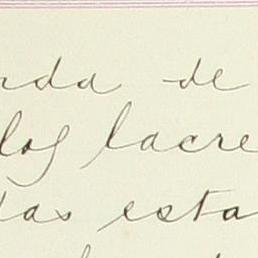 rda de
los lacre
das esta